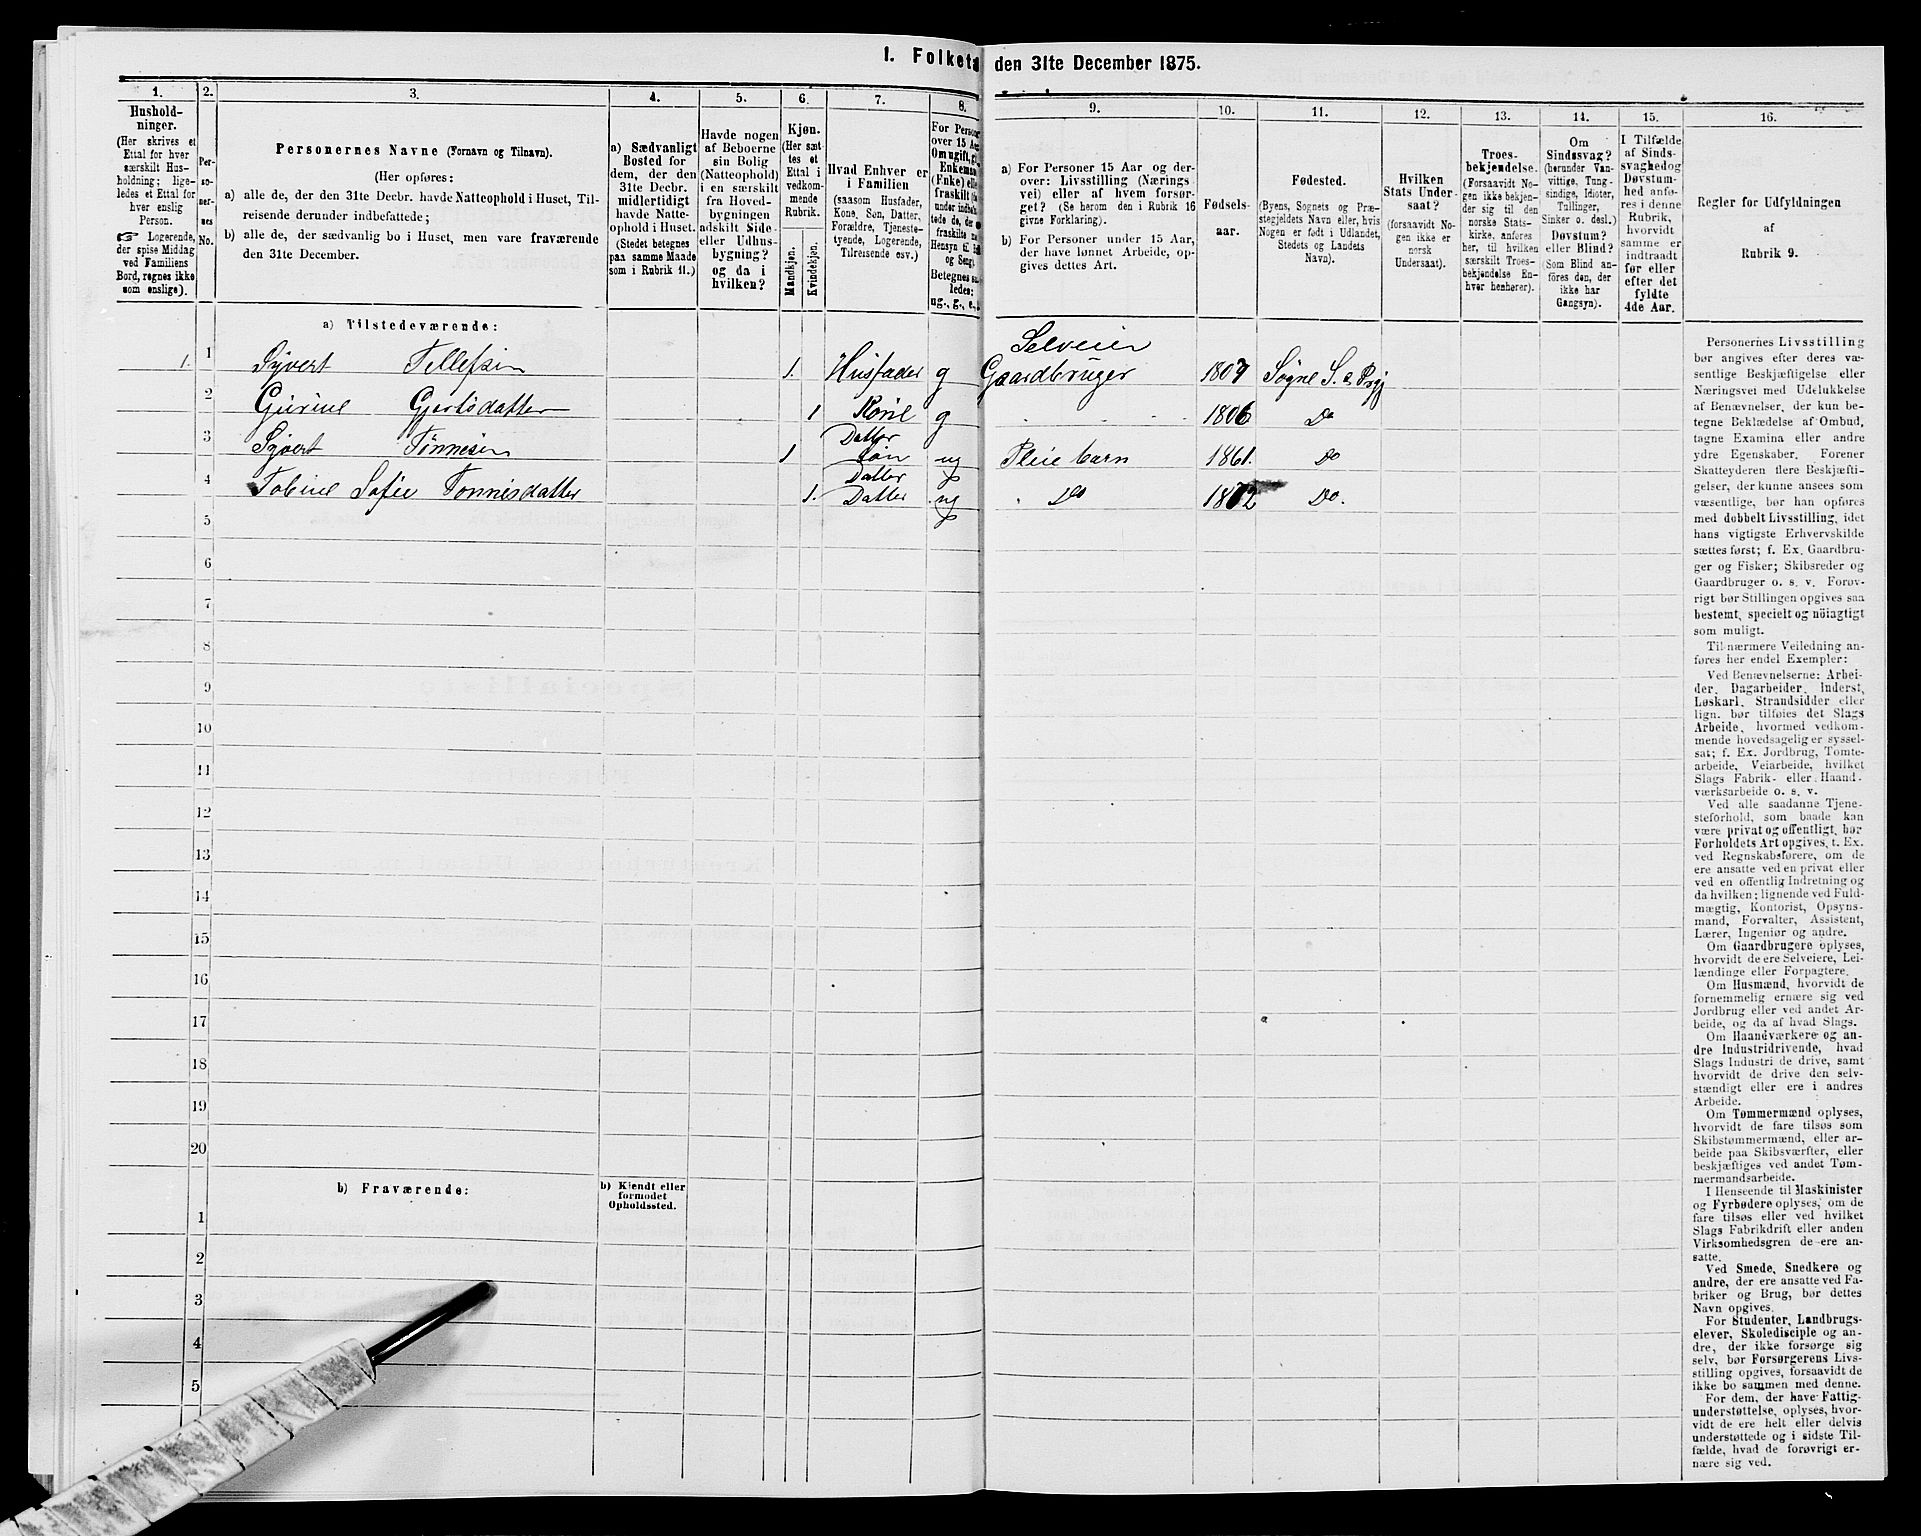 I. Folketa den 31te December 1875.
1.
Hushold-
ninger.
(Her skrives et
Ettal for hver
særskilt Hus-
holdning; lige-
ledes et Ettal for
hver enslig
Person.
☞ Logerende,
der spise Middag
ved Familiens
Bord, regnes ikke
som enslige).
2.
Per-
so-
ner-
nes
No.
3.
Personernes Navne (Fornavn og Tilnavn).
(Her opføres:
a) alle de, der den 31te Decbr. havde Natteophold i Huset, Til-
reisende derunder indbefattede;
b) alle de, der sædvanlig bo i Huset, men vare fraværende
den 31te December.
4.
a) Sædvanligt
Bosted for
dem, der den
31te Decbr.
midlertidigt
havde Natte-
ophold i Huset.
(Stedet betegnes
paa samme Maade
som i Rubrik 11.)
5.
Havde nogen
af Beboerne
sin Bolig
(Natteophold)
i en særskilt
fra Hoved-
bygningen
adskilt Side-
eller Udhus-
bygning?
og da i
hvilken?
6.
Kjøn.
(Her sæt-
tes et
Ettal i
vedkom-
mende
Rubrik.
Mandkjøn.
Kvindekjøn.
7.
Hvad Enhver er
i Familien
(saasom Husfader,
Kone, Søn, Datter,
Forældre, Tjeneste-
tyende, Logerende,
Tilreisende osv.)
8.
For Person
over 15 Aa
Om ugift, g
Enkeman
(Enke) elle
fraskilt
under indbe
tede de, der
fraskilte
Hensyn til
og Seng.
Betegnes sa
ledes:
ug., g., e.,
9.
a) For Personer 15 Aar og der-
over: Livsstilling (Nærings
vei) eller af hvem forsør-
get? (Se herom den i Rubrik 16
givne Forklaring).
b) For Personer under 15 Aar,
der have lønnet Arbeide, op-
gives dettes Art.
10.
Fødsels-
aar.
11.
Fødested.
(Byens, Sognets og Præ-
stegjeldets Navn eller, hvis
Nogen er født i Udlandet,
Stedets og Landets
Navn).
12.
Hvilken
Stats Under-
saat?
(forsaavidt No-
gen ikke er
norsk
Undersaat).
13.
Troes-
bekjendelse.
(Forsaavidt No-
gen ikke bekjen-
der sig til den
norske Stats-
kirke, anføres
her, til hvilken
særskilt Troes-
bekjendelse En-
hver henhører).
14.
Om
Sindssvag?
(herunder Van-
vittige, Tung-
sindige, Idioter,
Tullinger,
Sinker o. desl.)
Døvstum?
eller Blind?
(Som Blind an-
føres den, der
ikke har
Gangsyn).
15.
I Tilfælde
af Sinds-
svaghed og
Døvstum-
hed anfø-
res i denne
Rubrik,
hvorvidt
samme er
indtraadt
før eller
efter det
fyldte
4de Aar.
16.
Regler for Udfyldningen
af
Rubrik 9.
a) Tilstedeværende:
Selveier
1. 1 Syvert Tellefsen 1. Husfader g Gaardbruger 1807 Søgne S. & Prgj
2 Gurine Gjertsdatter 1 Kone g 1806 Do
Datter
3 Syvert Tønnesen 1 Søn ug Pleiebarn 1861. Do
Datter
4 Tobine Sofie Tønnesdatter 1. Datter ug Do 1872 Do.
5
6
7
8
9
10
11
12
13
14
15
16
17
18
19
20
b) Fraværende:
b) Kjendt eller
formodet
Opholdssted.
1
2
3
4
5
Personernes Livsstilling
bør angives efter deres væ-
sentlige Beskjæftigelse eller
Næringsvei med Udelukkelse
af Benævnelser, der kun be-
tegne Beklædelse af Ombud,
tagne Examina eller andre
ydre Egenskaber. Forener
Skatteyderen flere Beskjæfti-
gelser, der kunne ansees som
væsentlige, bør han opføres
med dobbelt Livsstilling, idet
hans vigtigste Erhvervskilde
sættes først; f. Ex. Gaardbru-
ger og Fisker; Skibsreder og
Gaardbruger o. s. v. Forøv-
rigt bør Stillingen opgives saa
bestemt, specielt og nöiagtigt
som muligt.
Til nærmere Veiledning an-
føres her endel Exempler:
Ved Benævnelserne: Arbei-
der, Dagarbeider, Inderst,
Løskarl, Strandsidder eller
lign. bør tilføies det Slags
Arbeide, hvormed vedkom-
mende hovedsagelig er syssel-
sat; f. Ex. Jordbrug, Tomte-
arbeide, Veiarbeide, hvilket
Slags Fabrik- eller Haand-
værksarbeide o. s. v.
Ved alle saadanne Tjene-
steforhold, som baade kan
være privat og offentligt, bør
Forholdets Art opgives, t. Ex.
ved Regnskabsførere, om de
ere ansatte ved en privat eller
ved en offentlig Indretning og
da hvilken; lignende ved Fuld-
mægtig, Kontorist, Opsyns-
mand, Forvalter, Assistent,
Lærer, Ingeniør og andre.
Om Gaardbrugere oplyses,
hvorvidt de ere Selveiere, Lei-
lændinge eller Forpagtere.
Om Husmænd, hvorvidt de
fornemmelig ernære sig ved
Jordbrug eller ved andet Ar-
beide, og da af hvad Slags.
Om Haandværkere og an-
dre Industridrivende, hvad
Slags Industri de drive, samt
hvorvidt de drive den selv-
stændigt eller ere i andres
Arbeide.
Om Tømmermænd oplyses,
hvorvidt de fare tilsøs som
Skibstømmermænd, eller ar-
beide paa Skibsværfter, eller
beskjæftiges ved andet Tøm-
mermandsarbeide.
I Henseende til Maskinister
og Fyrbødere oplyses, om de
fare tilsøs eller ved hvilket
Slags Fabrikdrift eller anden
Virksomhedsgren de ere an-
satte.
Ved Smede, Snedkere og
andre, der ere ansatte ved Fa-
briker og Brug, bør dettes
Navn opgives.
For Studenter, Landbrugs-
elever, Skoledisciple og an-
dre, der ikke forsørge sig
selv, bør Forsørgerens Livs-
stilling opgives, forsaavidt de
ikke bo sammen med denne.
For dem, der have Fattig-
understøttelse, oplyses, hvor-
vidt de ere helt eller delvis
understøttede og i sidste Til-
fælde, hvad de forøvrigt er-
nære sig ved.